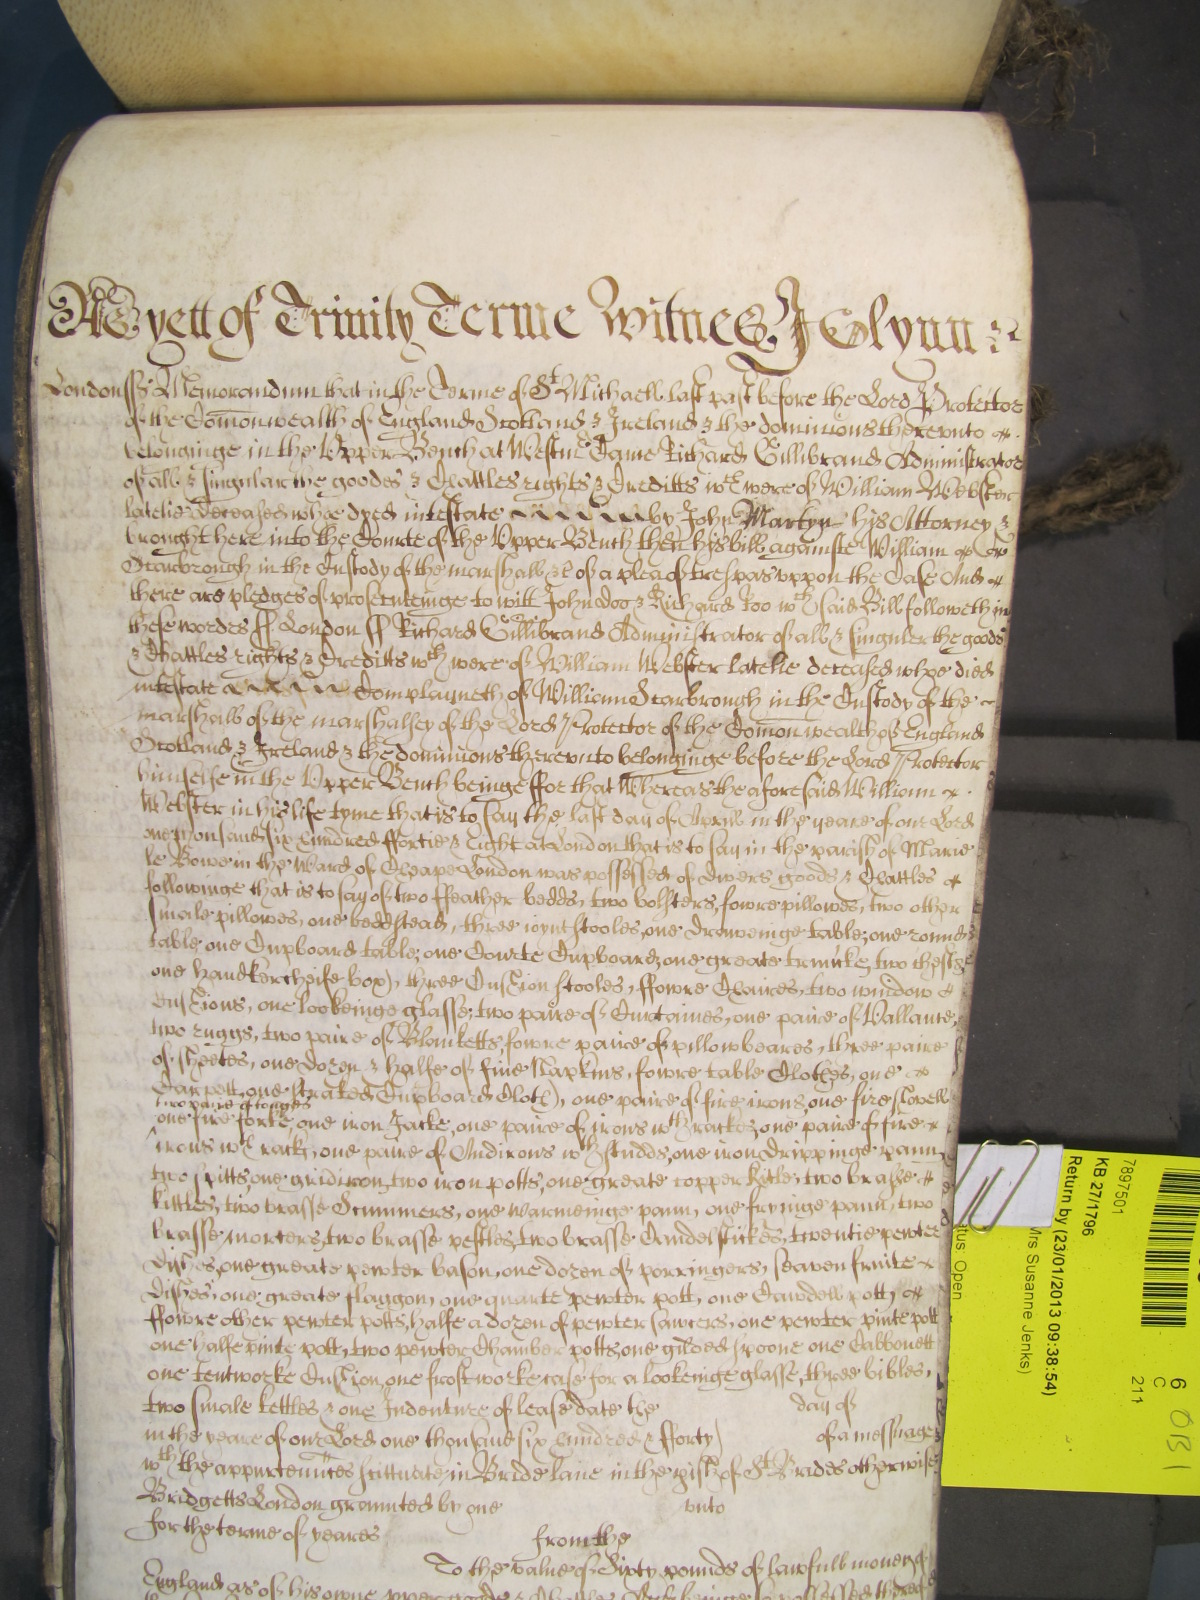 As yett of Trinity Terme Witnes J Glynn &c
London ss Memorandum that in the Terme of St Michaell last past before the Lord Protector
of the Comonwealth of England Scotland & Ireland & the dominions therevnto
belonginge in the Vpper Bench at Westmr Came Richard Gillibrand Administrator
of all & singular the goodes & Chattles rights & Creditts wch were of William Webster
latelie deceased whoe dyed intestate by John Martyn his Attorney &
brought here into the Courte of the Vpper Bench then his bill againste William
Scarbrough in the Custody of the marshall &c of a plea of trespas vppon the Case And
there are pledges of prosecuteinge to witt John Doo & Richard Roo wch said Bill followeth in
these wordes ss London ss Richard Gillibrand Administrator of all & singuler the goods
& Chattles rights & Creditts wch were of William Webster latelie deceased whoe died
intestate Complayneth of William Scarbrough in the Custody of the
marshall of the marshalsey of the Lord Protector of the Comonwealth of England
Scotland & Ireland & the dominions therevnto belonginge before the Lord Protector
himselfe in the Vpper Bench beinge ffor that Whereas the aforesaid William
Webster in his life tyme that is to say the last day of Aprill in the yeare of our Lord
one thousand six hundred ffortie & eight at London that is to say in the parish of Marie
le Bowe in the Ward of Cheape London was possessed of divers goods & Chattles
followinge that is to say of two ffeather bedds, two bolsters, fowre pillowes, two other
smale pillowes, one beddstead, three ioynt stooles, one draweinge table, one round
table one Cupboard table, one Courte Cupboard, one greate trunke, two
one handkercheife box, three Cushion stooles, ffowre Chaires, two window
Cushions, one lookeinge glasse, two paire of Curtaines, one paire of Vallance,
two ruggs, two paire of Blanketts, fowre paire of pillowbeares, three paire
of sheetes, one dozen & halfe of fine Napkins, fowre table Clothes, one
Carpett, one Cupboard Cloth, one paire of fire irons, one fire shovell
two paire of tonges
one fire forke, one iron Jacke, one paire of irons wth rackes, one paire of fire
irons wth racks, one paire of Andirons wth studds, one iron drippinge pann,
two spitts, one gridiron, two iron potts, one greate copper kitle, two brasse
kittles, two brasse Scummers, one warmeinge pann, one fryinge pann, two
brasse morters, two brasse pestles, two brasse Candelstickes, twentie pewter
dishes, one greate pewter bason, one dozen of porringers, seaven fruite
dishes, one greate flaggon, one quarte pewter pott, one Cawdell pott,
ffowre other pewter potts, halfe a dozen of pewter sawcers, one pewter pinte pott
one halfe pinte pott, two pewter Chamber potts, one gilded spoone one Cabbonett
one tentworke Cushion, one frostworke case for a lookeinge glasse, three bibles,
two smale kettles & one Indenture of lease date the day of
in the yeare of our Lord one thousand six hundred & fforty of a messuage
wth the appurtennces scittuate in Bride lane in the pish of St Brides otherwise
Bridgetts London graunted by one vnto
for the terme of yeares from the
To the value of Sixty pounds of lawfull money of
England as of his owne pper goods & Chattles And beinge soe possessed thereof
7897501
KB 27/1796
Return by (23/01/2013 09:38:54)
Mrs Susanne Jenks)
tus: Open
6
C
211